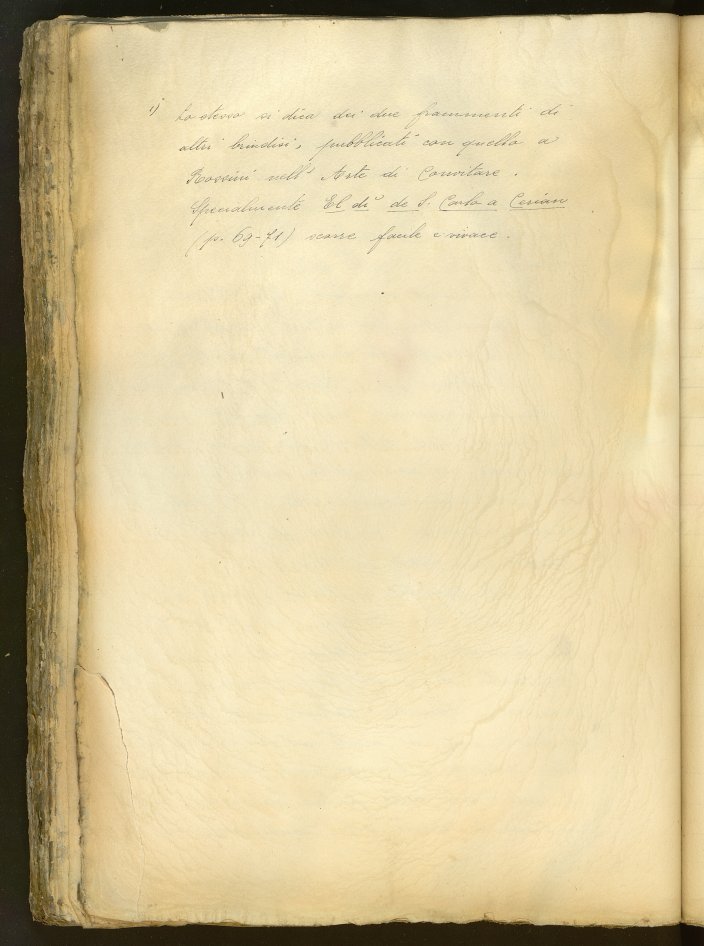 1) Lo stesso si dica dei due frammenti di
altri brindisi, pubblicati con quello a
Rossini nell' Arte di Convitare.
Specialmente El dì de S. Carlo a Cerian
(p. 69-71) scorre facile e vivace.